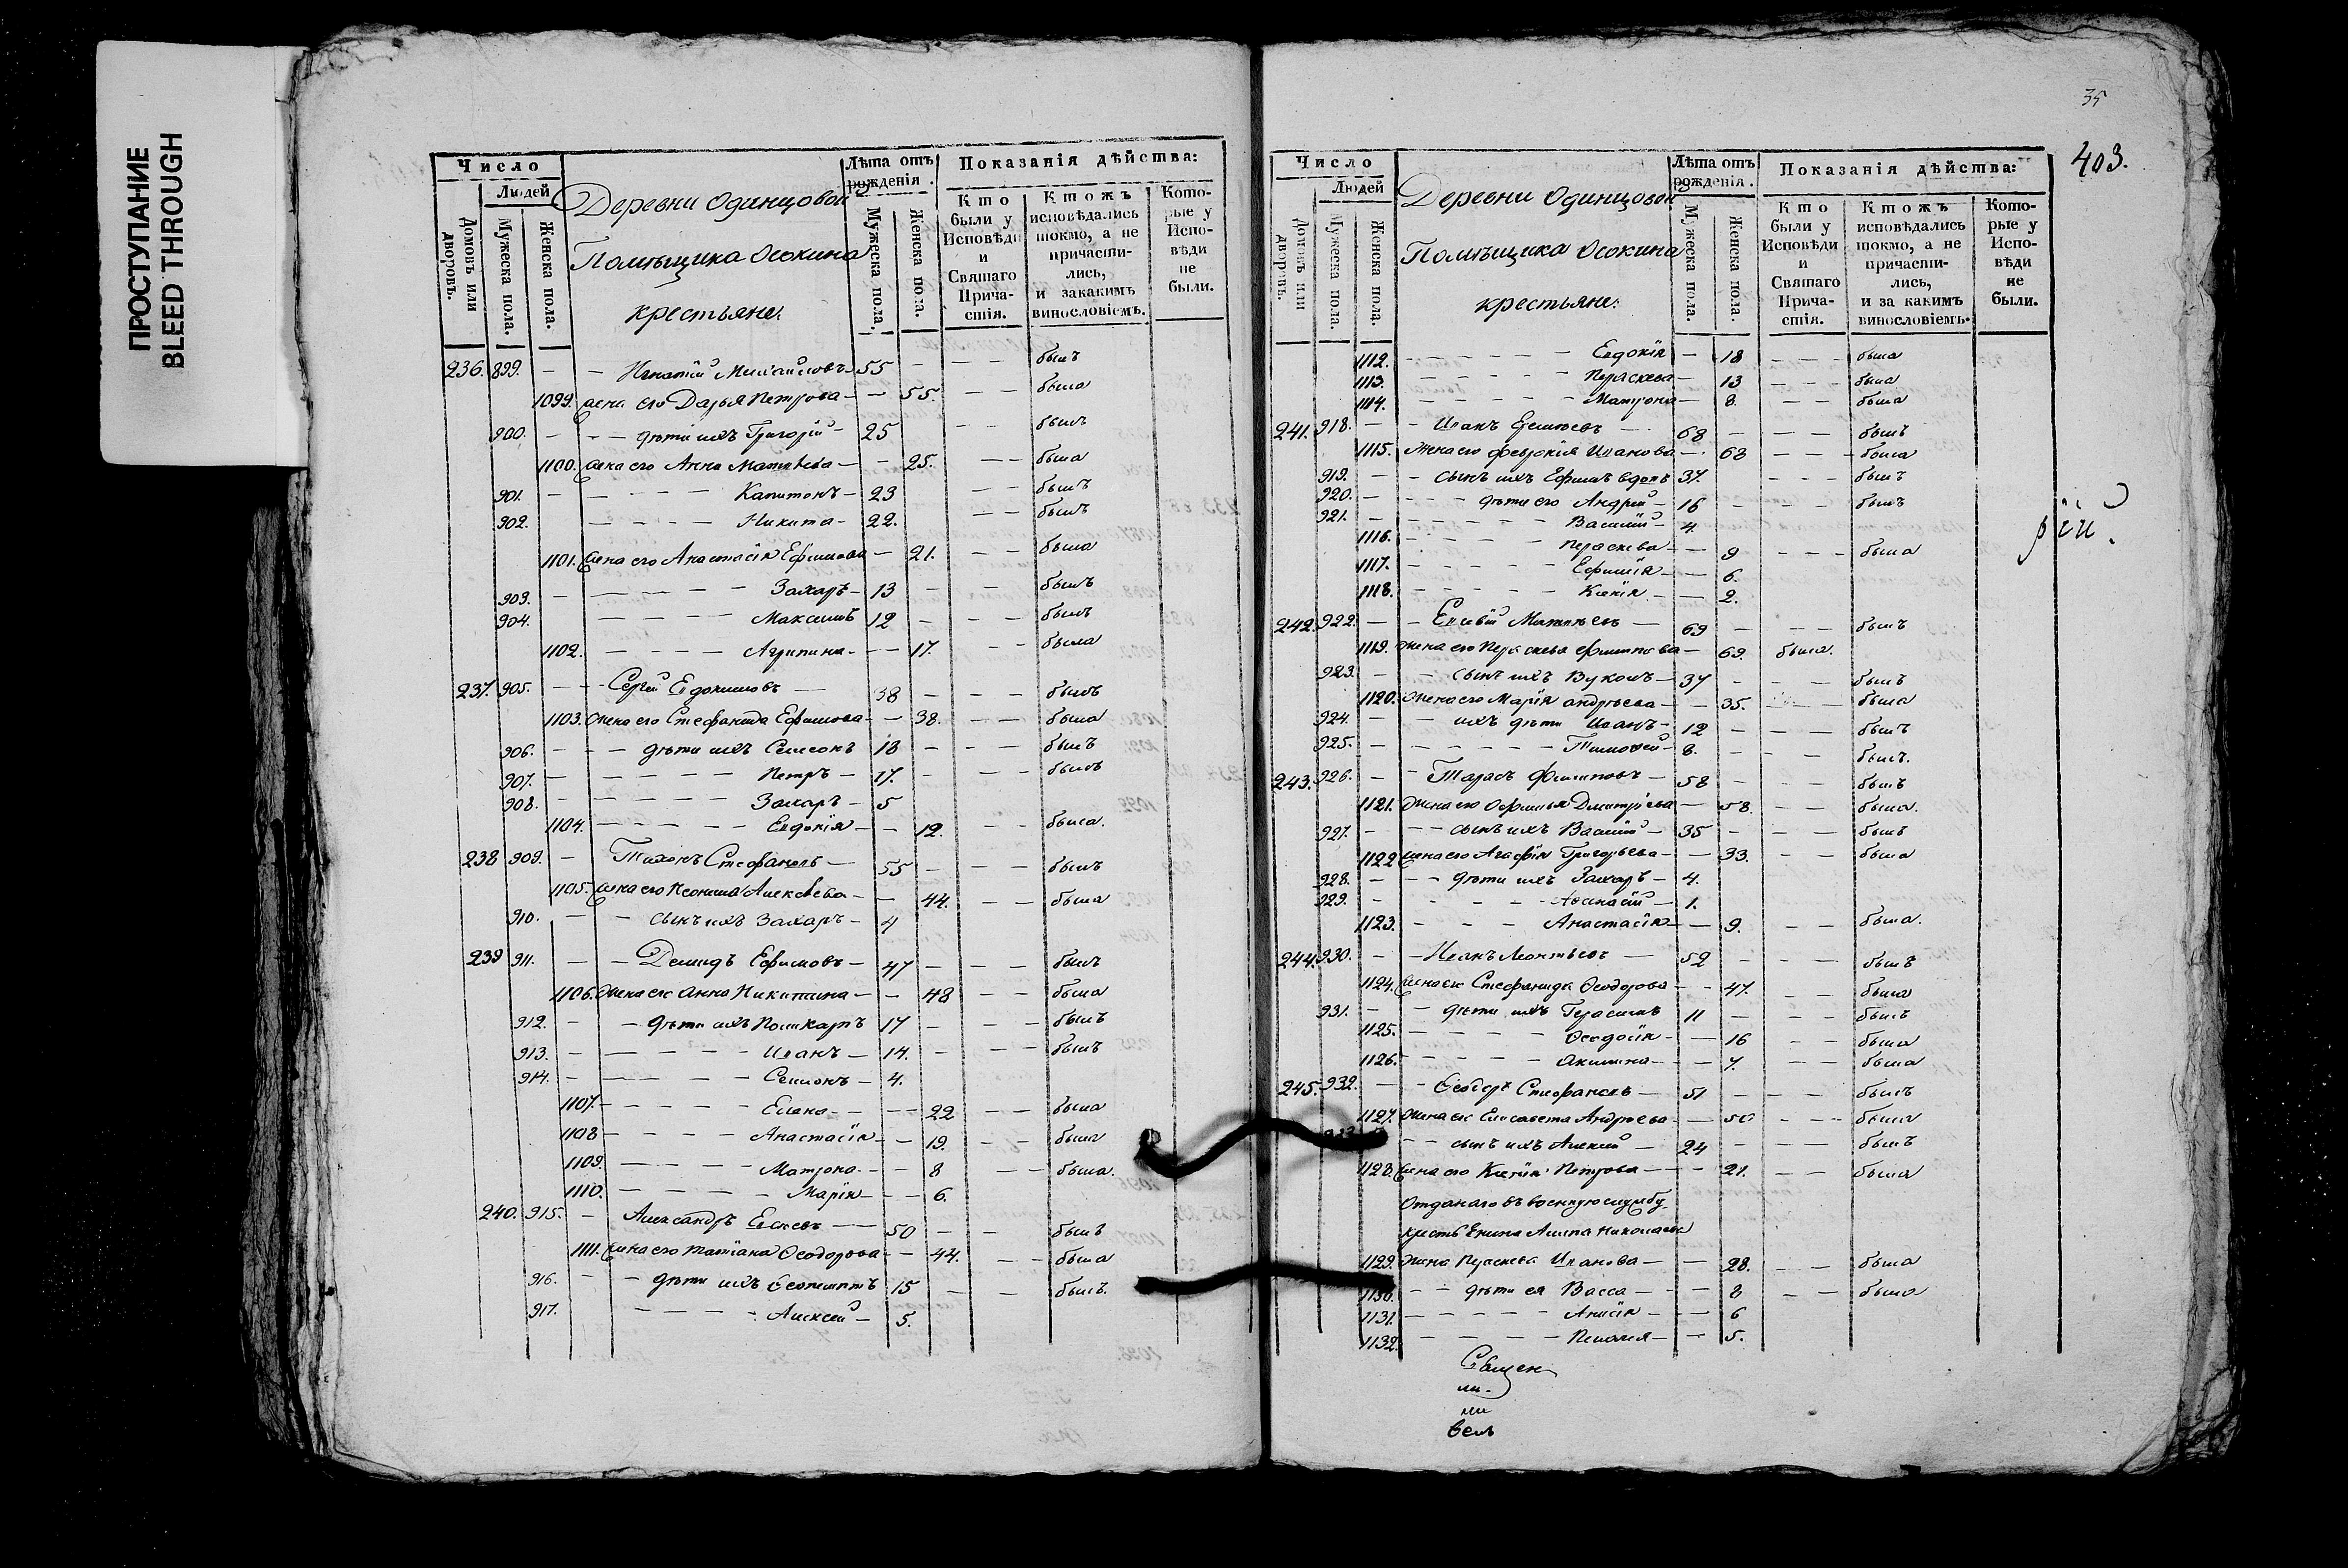 ПРОСТУПАНИЕ
BLEED THROUGH
Число
Людей
Домовъ или дворовъ.
Мужеска пола.
Женска пола.
Деревни Одинцовой
Помѣщика Осокина
крестьяне:
Лѣта отъ рожденія.
Мужеска пола.
Женска пола.
Показанія дѣйства:
Кто были у Исповѣди и Святаго Причастія.
Ктожъ исповѣдались токмо, а не причастились, и закакимъ винословіемъ.
Которые у Исповѣди не были.
236. 899. — — Игнатій Михайловъ — 55 — — — былъ
1099. жена его Дарья Петрова — — 55. — — была
900. — — — дѣти ихъ Григорій — 25 — — былъ
1100. жена его Анна Матвѣева — — 25. — — была
901. — — — — — Капитонъ — 23 — — былъ
902. — — — — Никита — 22. — — былъ
1101. жена его Анастасія Ефимова — 21. — — была
903. — — — — — Захаръ — 13 — — былъ
904. — — — — Максимъ 12 — — — былъ
1102. — — — — Агрипина — — 17. — — была
237. 905. — — Сергій Евдокимовъ — 38 — — — былъ
1103. жена его Стефанида Ефимова — — 38. — — была
906. — — — дѣти ихъ Симеонъ 18 — — — былъ
907. — — — — — Петръ — 17. — — — былъ
908. — — — — — Захаръ — 5
1104. — — — — — Евдокія — — 12. — — была.
238 909. — Тихонъ Стефановъ — 55 — — — былъ
1105. жена его Ксенія Алексѣева — — 44. — — была
910. — — сынъ ихъ Захаръ — 4
239 911. — — Демидъ Ефимовъ — 47 — — — былъ
1106. жена его Анна Никитина — — 48 — — была
912. — — дѣти ихъ Поликарпъ 17 — — — былъ
913. — — — — — Иванъ — 14. — — — былъ
914. — — — — — Симеонъ — 4.
1107. — — — — — Елена — — — 22 — — была
1108 — — — — Анастасія — — 19. — — была
1109. — — — — Матрона — — 8 — — была.
1110. — — — — — Марія — — — 6.
240. 915. — Александръ — 50 — — былъ
1111. жена его Татіана Ѳеодорова — — 44. — — была
916. — — дѣти ихъ 15 — — былъ.
917. — — — — Алексей — 5.
35
403.
Число
Людей
Домовъ или дворовъ.
Мужеска пола.
Женска пола.
Деревни Одинцовой
Помѣщика Осокина
крестьяне:
Лѣта отъ рожденія.
Мужеска пола.
Женска пола.
Показанія дѣйства:
Кто были у Исповѣди и Святаго Причастія.
Ктожъ исповѣдались токмо, а не причастились, и за какимъ винословіемъ.
Которые у Исповѣди не были.
1112. — — — — — Евдокія — 18 — — — была
1113. — — — — — Параскева — 13 — — — была
1114. — — — — — Матрона — 8. — — была
241. 918. — — Иванъ — 68 — — — былъ
1115. жена его Февронія Иванова — 68 — — — была
919. — — сынъ ихъ Ефимъ вдовъ 37. — — — былъ
920. — — — дѣти его Андрей — 16 — — — былъ
921. — — — — — Василій — 4.
1116. — — — — Параскева — — 9 — — — была
1117. — — — — — Ефимія — — 6.
1118. — — — — — Ксенія — — 2.
242. 922. — — Матвѣевъ — 69 — — — былъ
1119. жена его Параскева Филиппова — 69. была.
923. — — сынъ ихъ Вуколъ — 37 — — — былъ
1120. жена его Марія Андреева — — 35. — была
924. — — ихъ дѣти Иванъ — 12 — — — былъ
925. — — — — — Тимоѳей — 8. — — — былъ.
243. 926. — — Тарасъ Филиповъ — 58 — — былъ
1121. жена его Дмитріева — — 58. — — была.
927. — — — сынъ ихъ Василій — 35 — — — былъ
1122 жена его Агафія Григорьева — — 33. — — была
928. — — — дѣти ихъ Захаръ — 4.
929. — — — — Аѳанасій — 1.
1123. — — — Анастасія — — 9. — — была.
244. 930. — — Иванъ Леонтьевъ — 52 — — — былъ
1124. жена его Стефанида Ѳеодорова — — 47. — — была
931. — — дѣти ихъ Герасимъ 11 — — — былъ
1125. — — — — Ѳеодосія — — 16 — — была
1126. — — — — Акилина — — 7. — — была
245. 932. — — Ѳеодоръ Стефановъ — 51 — — — былъ
1127. жена его Елисавета Андреева — — 50 — — — была
— — сынъ ихъ Алексій — 24 — — — былъ
1128. жена его Ксенія Петрова — — — 21. — — была
Отданаго въ военную службу
Николаева
1129. жена Параскева Иванова — — 28. — — была
1130. — — дѣти ея Васса — — — 8 — — была
1131. — — — — — Анисія — — — 6
1132. — — — — — Пелагея — — 5.
рій.
Священ